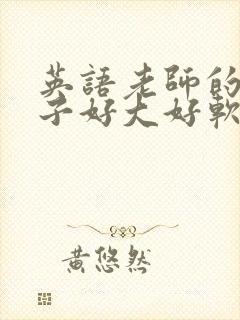 英語老師的
子好大好軟
黃悠然